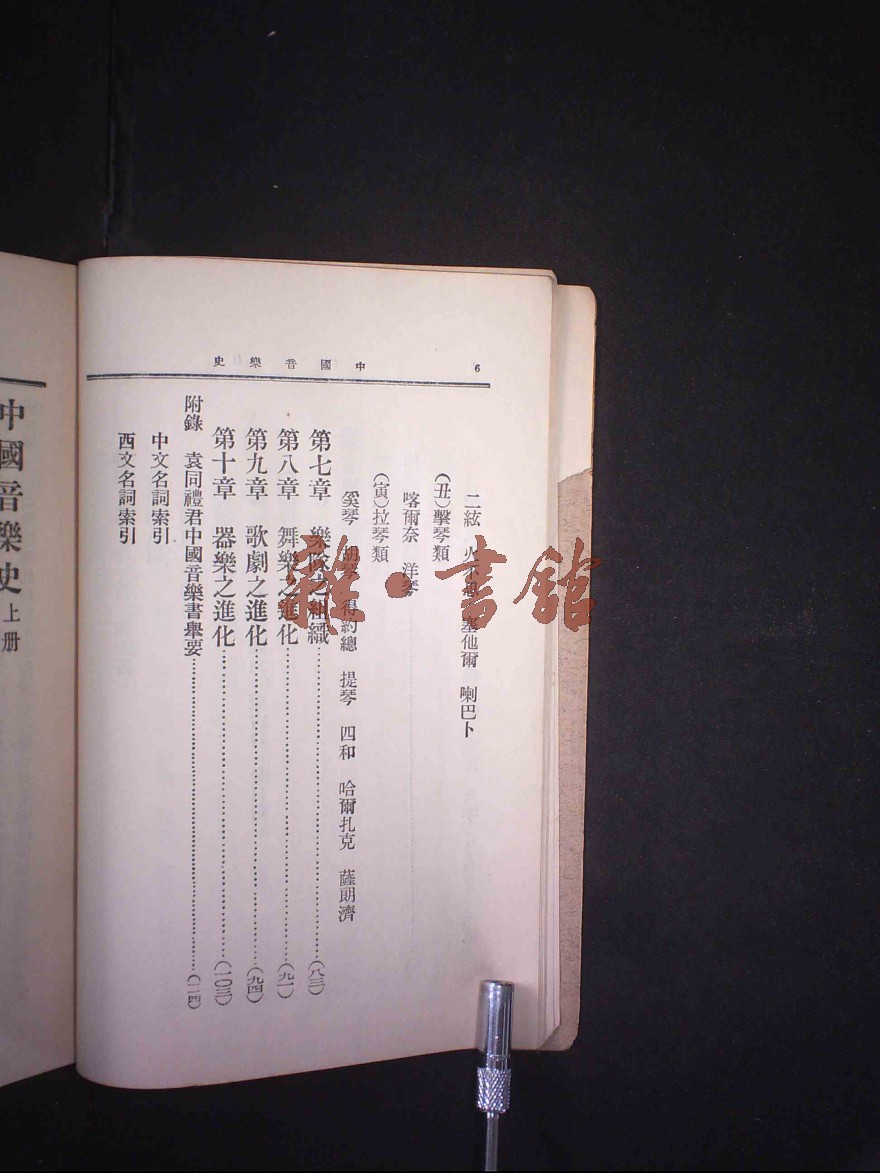 中國音樂史 6
二絃 火不思 塞他爾 喇巴卜
(丑)擊琴類
喀爾奈 洋琴
(寅)拉琴類
奚琴 胡琴 得約總 提琴 四和 哈爾扎克 薩朗濟
第七章 樂隊之組織……(八三)
第八章 舞樂之進化……(九一)
第九章 歌劇之進化……(九四)
第十章 器樂之進化……(一〇三)
附錄 袁同禮君中國音樂書舉要……(一一四)
中文名詞索引
西文名詞索引
中國音樂史上册
雜·書館